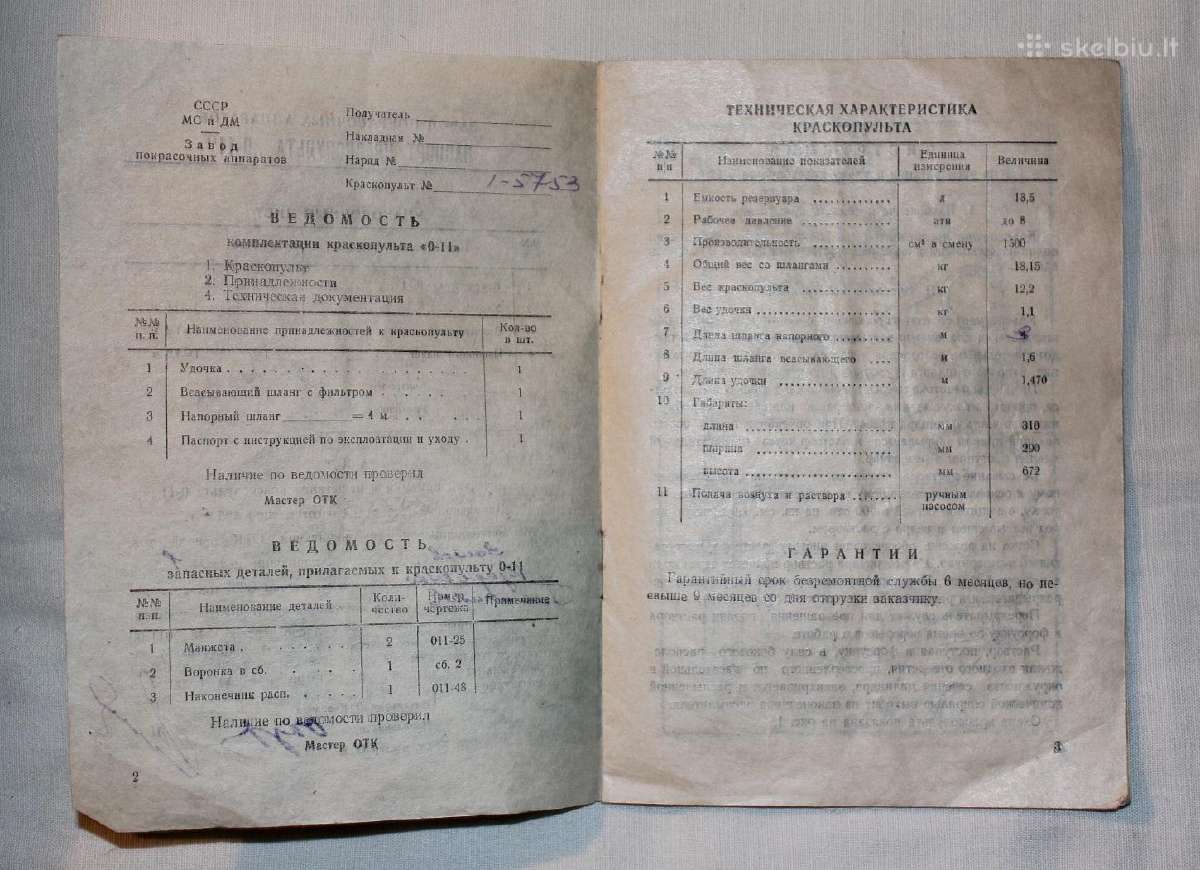 skelbiu.lt
СССР
МС и ДМ
Завод
покрасочных аппаратов
Получатель
Накладная №
Наряд №
Краскопульт № 1-5753
ВЕДОМОСТЬ
комплектации краскопульта «0-11»
1. Краскопульт
2. Принадлежности
4. Техническая документация
№№ п. п. Наименование принадлежностей к краскопульту Кол-во в шт.
1 Удочка 1
2 Всасывающий шланг с фильтром 1
3 Напорный шланг = 4 м 1
4 Паспорт с инструкцией по эксплоатации и уходу 1
Наличие по ведомости проверил
Мастер ОТК
ВЕДОМОСТЬ
запасных деталей, прилагаемых к краскопульту 0-11
№№ п. п. Наименование деталей Коли-чество Номер чертежа Примечание
1 Манжета 2 011-25
2 Воронка в сб. 1 сб. 2
3 Наконечник расп. 1 011-48
Наличие по ведомости проверил
Мастер ОТК
2
ТЕХНИЧЕСКАЯ ХАРАКТЕРИСТИКА
КРАСКОПУЛЬТА
№№ п п Наименование показателей Единица измерения Величина
1 Емкость резервуара л 18,5
2 Рабочее давление ати до 8
3 Производительность в смену 1500
4 Общий вес со шлангами кг 18,15
5 Вес краскопульта кг 12,2
6 Вес удочки кг 1,1
7 Длина шланга напорного м
8 Длина шланга всасывающего м 1,6
9 Длина удочки м 1,470
10 Габариты:
длина мм 310
ширина мм 290
высота мм 672
11 Подача воздуха и раствора ручным насосом
ГАРАНТИИ
Гарантийный срок безремонтной службы 6 месяцев, но не
выше 9 месяцев со дня отгрузки заказчику.
3